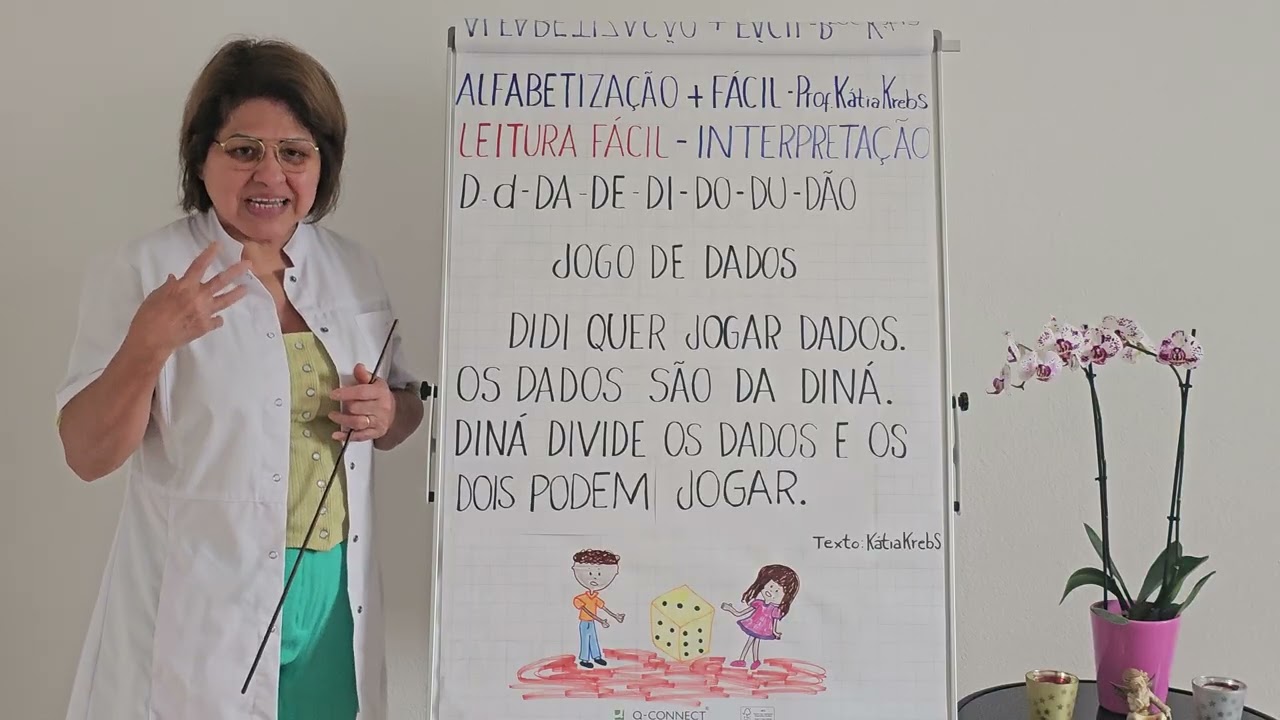 ALFABETIZAÇÃO + FÁCIL - Prof. Kátia Krebs
LEITURA FÁCIL - INTERPRETAÇÃO
D-d-DA-DE-DI-DO-DU-DÃO
JOGO DE DADOS
DIDI QUER JOGAR DADOS.
OS DADOS SÃO DA DINÁ.
DINÁ DIVIDE OS DADOS E OS
DOIS PODEM JOGAR.
Texto: Kátia Krebs
Q-CONNECT